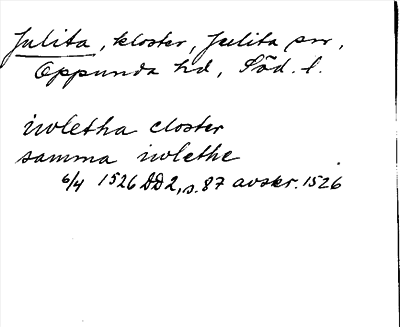 Julita, kloster, Julita sn,
Oppunda hd, Söd. l.
iwletha closter
samma iwlethe
6/4 1526 DD2, s. 87 avskr. 1526